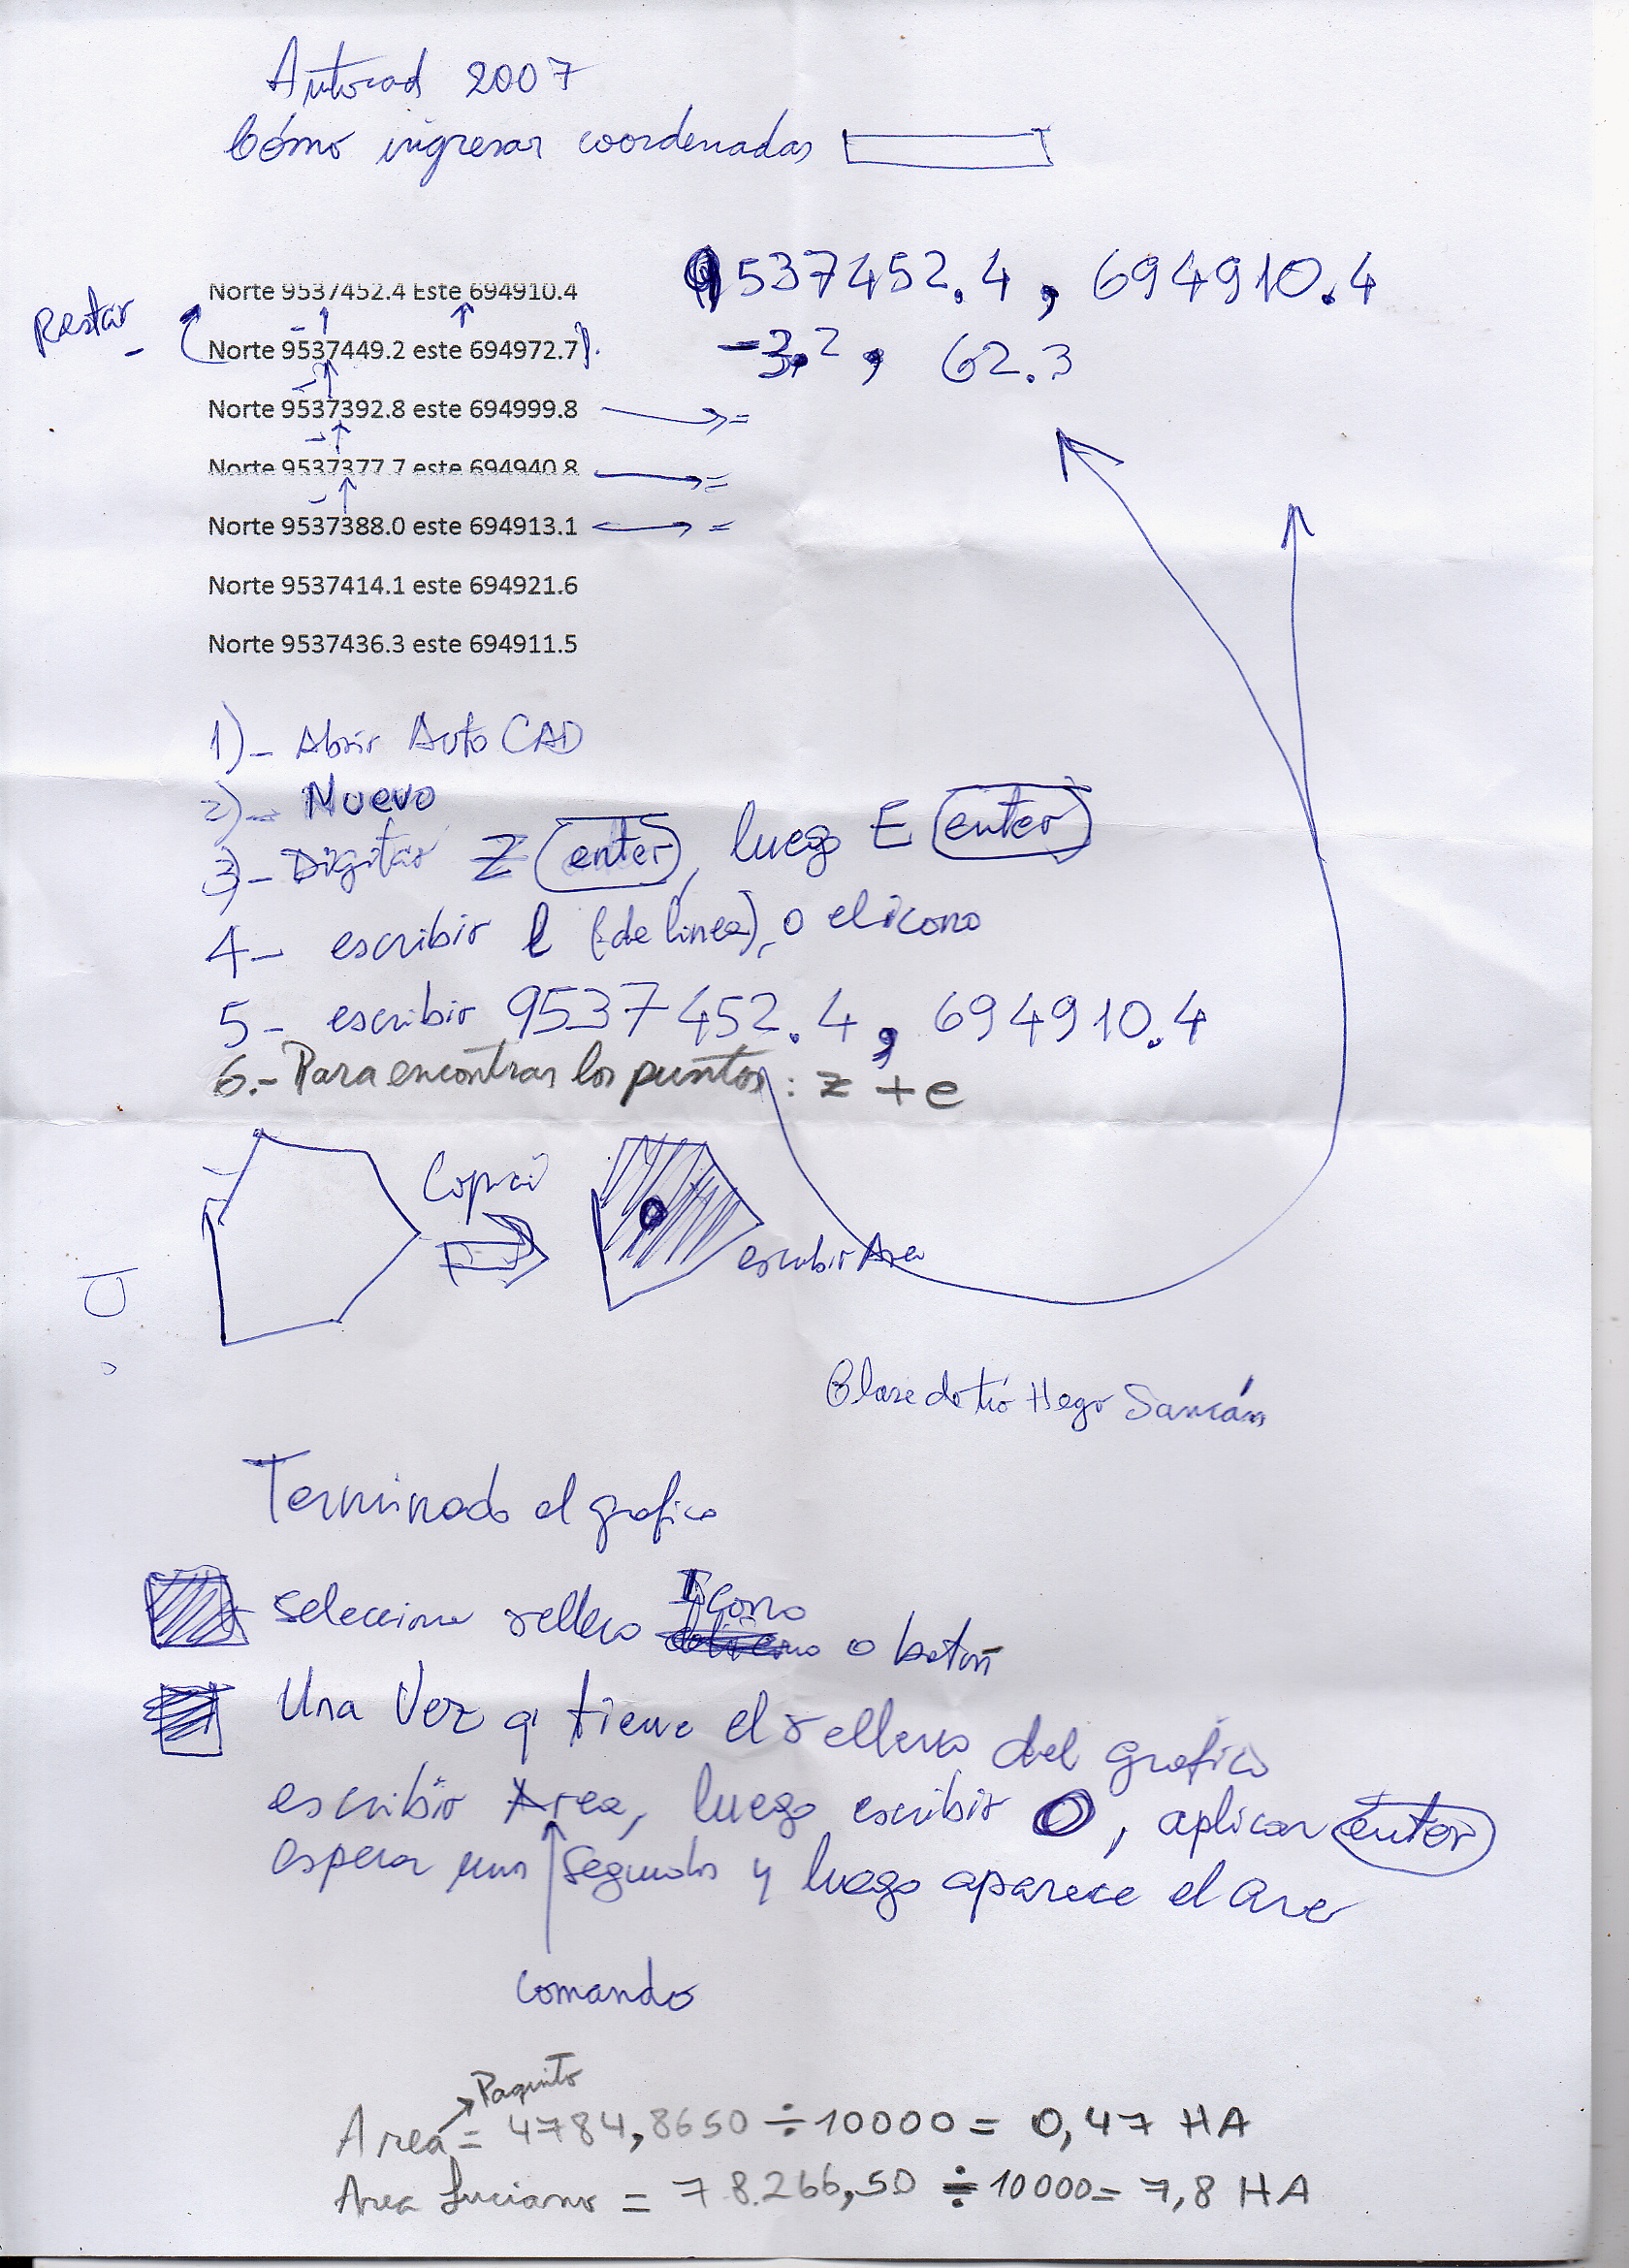 Autocad 2007
Cómo ingresar coordenadas
Restar -
Norte 9537452.4 Este 694910.4
9537452.4 , 694910.4
Norte 9537449.2 este 694972.7
-3.2 , 62.3
Norte 9537392.8 este 694999.8 =
Norte 9537377.7 este 694940.8 =
Norte 9537388.0 este 694913.1 =
Norte 9537414.1 este 694921.6
Norte 9537436.3 este 694911.5
1)- Abrir AutoCAD
2)- Nuevo
3- Digitar Z enter, luego E enter
4- escribir l (de linea), o el icono
5- escribir 9537452.4, 694910.4
6.- Para encontrar los puntos: z + e
Copiar
escribir Area
Sancán
Terminado el grafico
seleccione relleno Icono o boton
Una Vez q' tiene el relleno del grafico
escribir Area, luego escribir O, aplicar enter
espera unos segundos y luego aparece el area
comando
Paquito
Area = 4784,8650 ÷ 10000 = 0,47 HA
Area Luciano = 78.266,50 ÷ 10000 = 7,8 HA